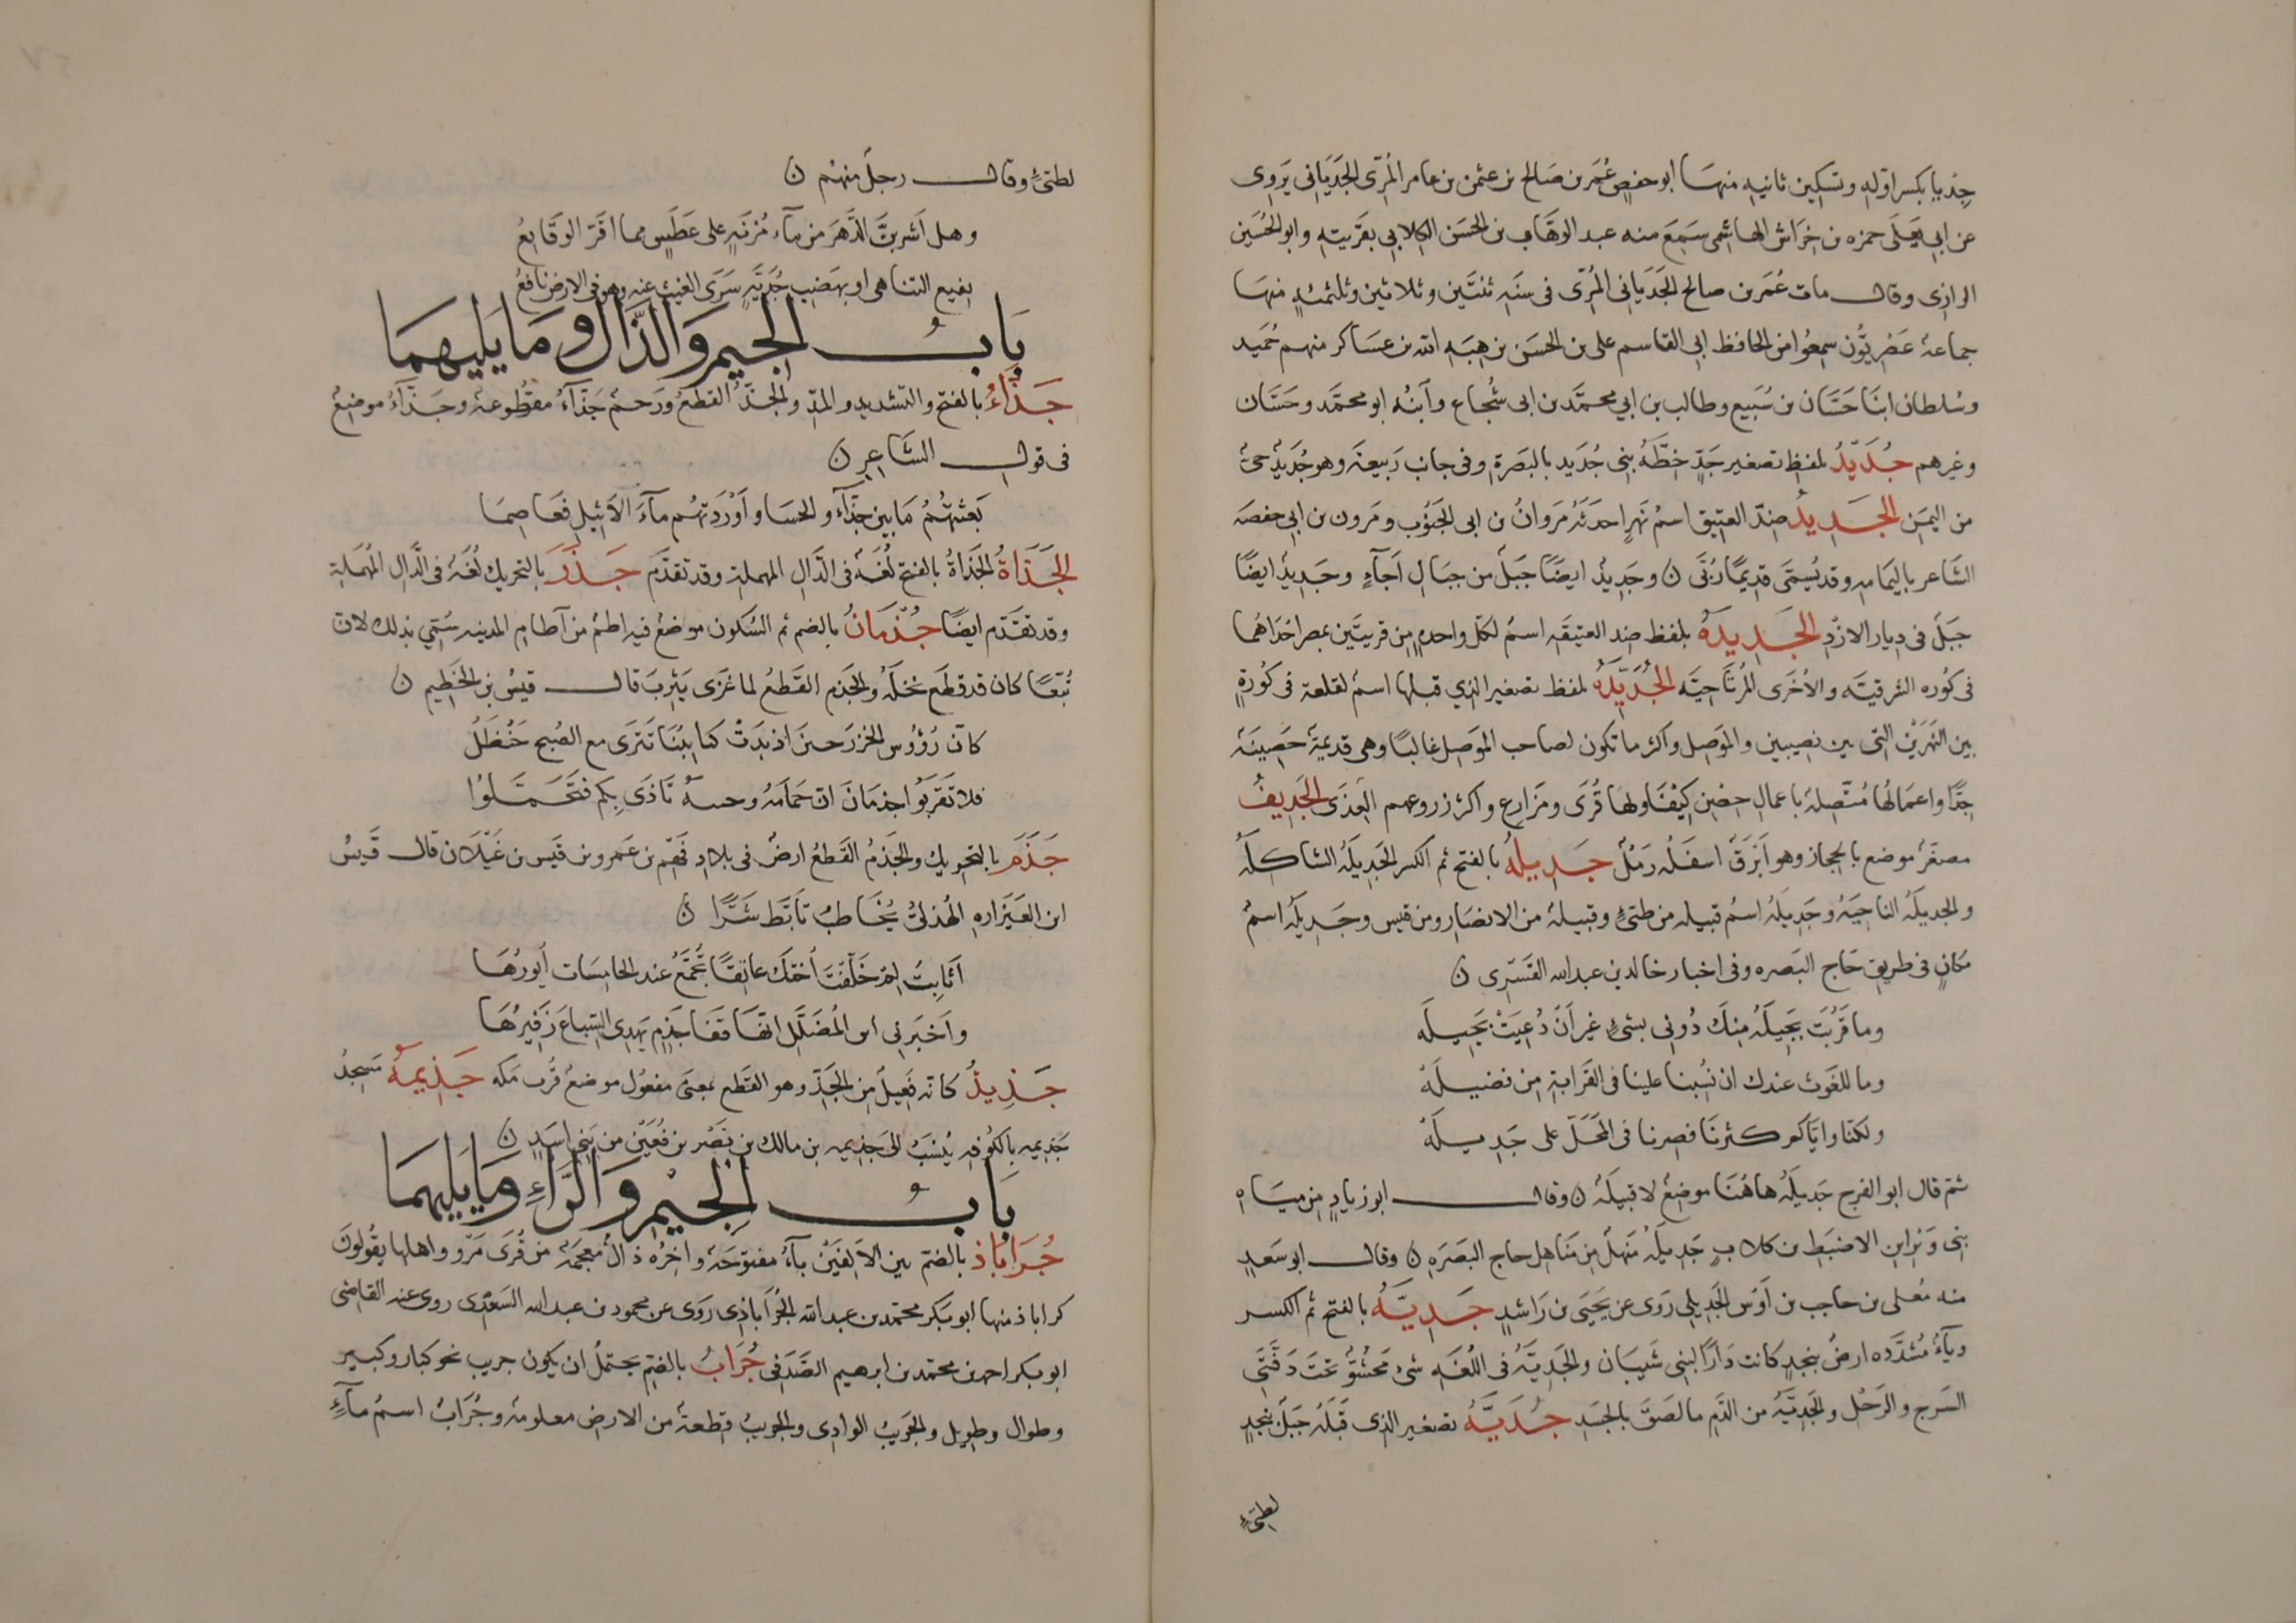 جِدْيا بكسر اوّله وتسكين ثانيه منها ابو حفص عُمَر بن صَالح بن عثمن بن عامر المُرّى الجَدَيَانى يَروى
عن ابى يَعلَى حمزه بن خِرَاش الهاشمى سَمِعَ منه عبد الوهَّاب بن الحسَن الكلابي بقَريتِه وابو الحُسَين
الرازى وقال مات عُمَر بن صالح الجَدَيَانى المُرّى فى سنَه ثنتَين وثلاثين وثلثمئهٍ منها
جماعة عَصْريُّون سمِعُوا من الحافظ ابى القاسم على بن الحسَن بن هِبَه الله بن عساكر منهم حُمَيد
وسُلطان ابنَا حَسَّان بن سُبَيع وطالب بن ابي محمَّد بن ابى شُجاع وآبنُه ابو محمَّد وحسَّان
وغيرهم جُدَيّدُ بلفظ تصغير جَدٍّ خِطَّهُ بنى جُدَيد بالبَصَرة وفى جانب رَبيعَة وهو جُدَيدُ حىٌّ
من اليَمَن الجَدِيدُ ضِدّ العتيق اسمُ نَهرٍ احدَثَهُ مَروَانُ بن ابى الجَنُوب ومَروان بن ابى حفصَه
الشَّاعر باليَمَامه وقد يُسمَّى قديمًا رُبَّى ن وجَدِيدُ ايضًا جَبلٌ من جبَال اَجآءٍ وجَدِيدُ ايضًا
جبَلٌ فى ديار الازْدِ الجَدِيدَهُ بلفظ ضِد العتيقَه اسمُ لكلّ واحدهٍ من قريتَين بمصر احدَاهُما
فى كُوره الشرقيَّه والاُخرَى المُرتَاحيَّه الجُدَيّدَهُ بلفظ تصغير الذي قبلها اسمُ لقلعة فى كُورةِ
بين النَهرَيْن التى بين نصيبين والمَوَصِل واكثر ما تكون لصاحب المَوصِل غالبًا وهى قديمةٌ حَصِينَةٌ
جِدًّا واعمَالهُا مُتّصِلهٌ باعمالِ حِصْن كيْفَا ولهَا قُرًى ومَزَارِع واكثر زروعهم العِذى الجُدَيفُ
مصغَّرٌ موضع بالحجاز وهو اَبْرَقٌ اسفَلُه رَمْلٌ جَدِيلَهُ بالفتح ثم الكسر الجَديلَهُ الشاكلَهُ
والجديلَهُ الناحِيَهُ وجَدِيلَهُ اسمُ قبيله من طىّءٍ وقبيلهٌ من الانصَار ومن قيس وجَدِيلَهُ اسمُ
مكانٍ فى طريق حَاجّ البَصره وفى اخبار خالد بن عبد الله القَسْرِى ن
وما قَرُبَت بَجيلَهُ مِنكَ دُونى بشىءٍ غير اَنْ دُعِيَتْ بَجِيلَه
وما للغَوث عندك ان نُسِبنا علينا فى القَرابةِ مِن فضيلَهْ
ولكنّا وايّاكم كثرنَا فصِرنا فى المَحَلّ على جَدِيلَهْ
ثم قال ابو الفرج جَديلَهُ هاهُنَا موضعٌ لا قبيلَهٌ ن وقال ابو زيادٍ من ميَاه
بنى وَبْر ابن الاضبَط بن كلابٍ جَدِيلَهُ مَنهَلٌ مِن مَنَاهِل حاج البَصَرَهِ ن وقال ابو سَعدٍ
منه مُعلى بن حاجب بن اَوَس الجَدِيلى رَوَى عن يَحيَى بن رَاشدٍ جَدِيَّهُ بالفتح ثم الكسر
وياءٌ مُشدَّده ارضُ بنجدٍ كانت دَارًا لبنى شَيبَان والجَديَّهُ فى اللّغَه شىءٌ مَحشُوٌّ تحتَ دَفَّتَى
السَرج والرَحْل والجَدِيَّهُ من الدّمِ ما لَصَقَ بالجسَدِ جُدَيَّهُ تصغير الذى قَبلَهُ جَبَلٌ بنجدٍ
لطىّءٍ
لطىّءٍ وقال رجلٌ منهُم ن
وهل اَشرَبنَّ الدَّهرَ من مآء مُزنَهٍ على عَطَشٍ مما اقرّ الوقَايعُ
بقيع التناهى او بهَضبِ جُدَيَّهٍ سَرَى الغيث عنه وهو فى الارض نافعُ
بَابُ الجيم وَالذَّال وما يَليهمَا
جَذّاءُ بالفتح والتشديد والمدّ والجذّ القطعُ ورَحمٌ جَذّآءُ مقطُوعةٌ وجَذّآءُ موضعٌ
فى قول الشاعِرِ ن
بَعثتهُمُ مَا بين جَذّآءَ والحسَا واَوْرَدتهُم مآءَ الاَثيلِ فعَاصِمَا
الجَذَاةُ الجَذاةُ بالفتح لُغَةٌ فى الدَّالِ المهملة وقد تقدَّم جَذَرُ بالتحريك لُغَةٌ فى الدَّالِ المُهمَلةِ
وقد تقدّم ايضًا جُذْمَانُ بالضم ثم السُكون موضعٌ فيهِ اطمٌ من آطامِ المدينه سُمّي بذلك لانّ
تُبّعًا كان قد قطَع نخلَهُ والجَذم القَطعُ لما غَزَى يثربَ قال قيسُ بن الخَطِيم ن
كانّ رُؤُوس الخزرَجين اذ بدَتْ كتايبُنَا تَترَى مع الصُبح حَنْظَلُ
فلا تَقرَبُوا جذمَانَ انّ حَمَامَهُ وجنتهُ تَاذَى بِكم فتَحمَّلوُا
جَذَمُ بالتحريك والجَذمُ القَطعُ ارضُ فى بلادِ فَهم بن عَمرو بن قيس بن عَيْلان قال قَيسُ
ابن العَيَزاره الهُذَلىّ يُخَاطبُ تاَبّطَ شَرًّا ن
اَثَابتُ لِمْ خَلّفتَ اُختكَ عاتقًا تُجمّعُ عند الخامسَات اُيورُهَا
واَخبَرنى ابو المُضَلَّل انّهَا قفَا جَذمٍ يَهدِى السّبَاعَ زَفِيرُهَا
جَذِيذُ كانّه فَعِيلٌ مِن الجَذّ وهو القَطع بمعنى مفعُول موضعُ قُرب مكه جَذِيمَهُ مَسجِدُ
جَذيمه بالكُوفهِ يُنسَبُ الى جَذِيمه بن مالك بن نَصْر بن قُعَيْن من بَنِى اسَدٍ ن
بَابُ الجِيْمِ وَالرَّاءِ وَمَا يَليهمَا
جُرَابَاذ بالضم بين الاَلِفَيْن بآءٌ مفتوحَةٌ واخِرُه ذالٌ مُعجمَةٌ من قُرَى مَرْو واهلها يقُولونَ
كراباذ منها ابو بكر محمّد بن عبد الله الجُرَابَاذى رَوَى عن محمود بن عبد الله السَعْدِى روى عنه القاضى
ابو بكر احمد بن محمّد بن ابرهيم الصَدَفى جُرَابُ بالضم يحتملُ ان يكون جريب نحو كبار وكبير
وطوال وطويل والجَرِيبُ الوادِى والجريبُ قطعةٌ من الارض معلومهٌ وجُرَابُ اسمُ مآءٍ